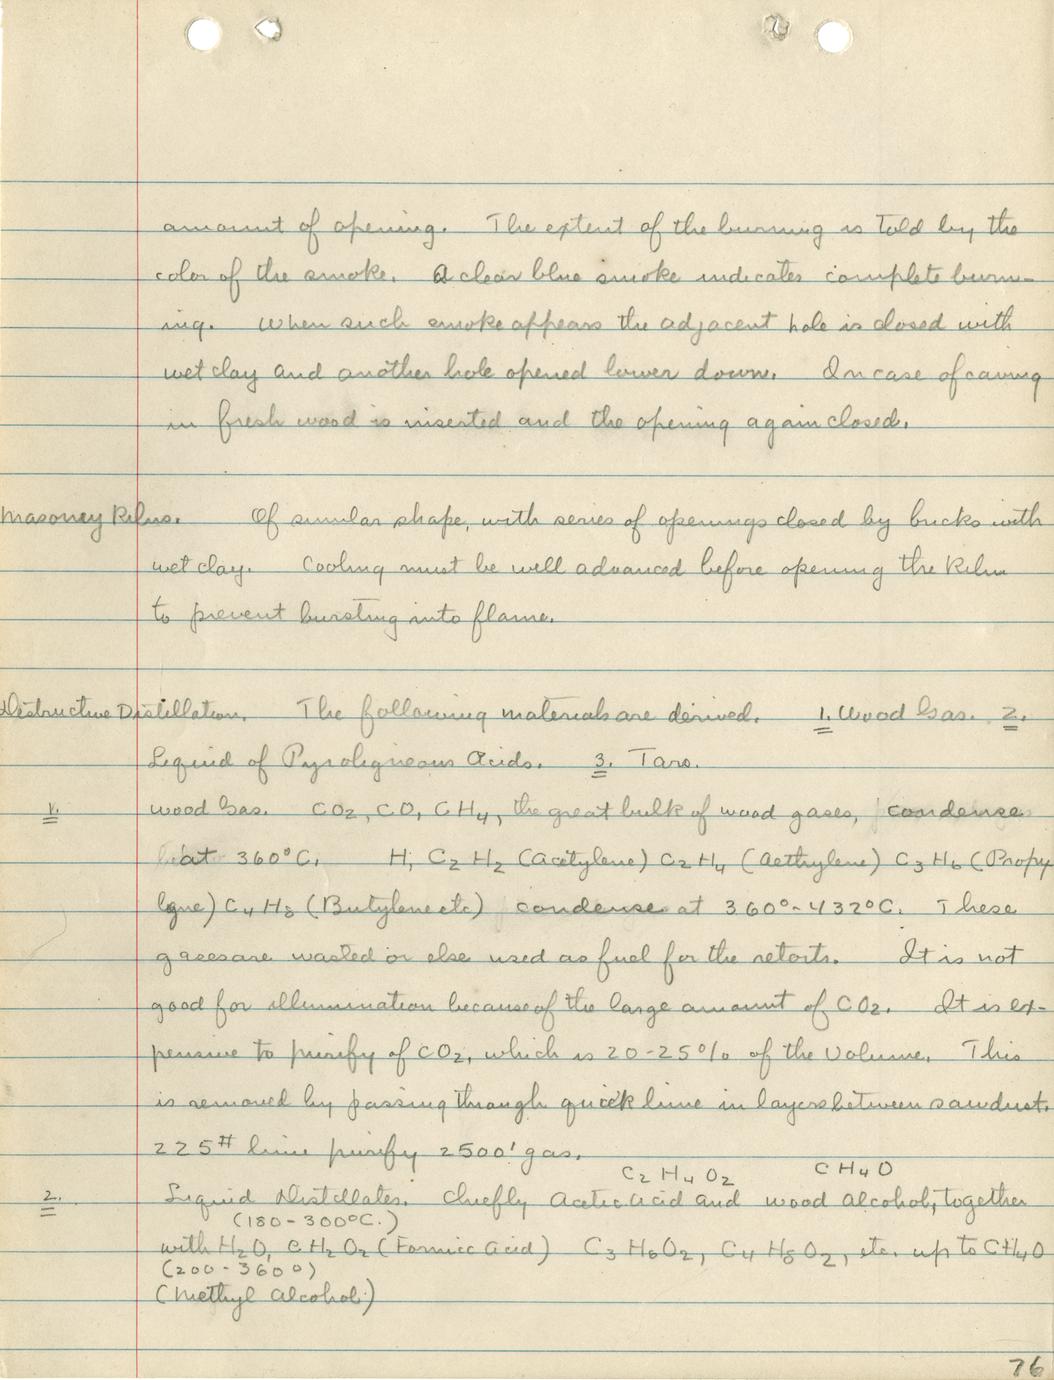 amount of opening. The extent of the burning is told by the
color of the smoke. A clear blue smoke indicates complete burn-
ing. When such smoke appears the adjacent hole is closed with
wet clay and another hole opened lower down. In case of caving
in fresh wood is inserted and the opening again closed.
Masonry Kilns. Of similar shape, with series of openings closed by bricks with
wet clay. Cooling must be well advanced before opening the Kiln
to prevent bursting into flame.
Destructive Distillation. The following materials are derived. 1. Wood Gas. 2.
Liquid of Pyroligneous Acids. 3. Tars.
1. Wood Gas. CO2, CO, CH4, the great bulk of wood gases, condense
at 360°C. H, C2H2 (Acetylene) C2H4 (Aethylene) C3H6 (Propy
lene) C4H8 (Butylene etc) condense at 360°-432°C. These
gases are wasted or else used as fuel for the retorts. It is not
good for illumination because of the large amount of CO2. It is ex-
pensive to purify of CO2, which is 20-25% of the volume. This
is removed by passing through quick lime in layers between sawdust.
225# lime purify 2500' gas.
C2H4O2 CH4O
2. Liquid Distillates. Chiefly Acetic Acid and wood alcohol, together
(180-300°C.)
with H2O, CH2O2 (Formic Acid) C3H6O2, C4H8O2, etc. up to CH4O
(200-360°)
(Methyl Alcohol)
76